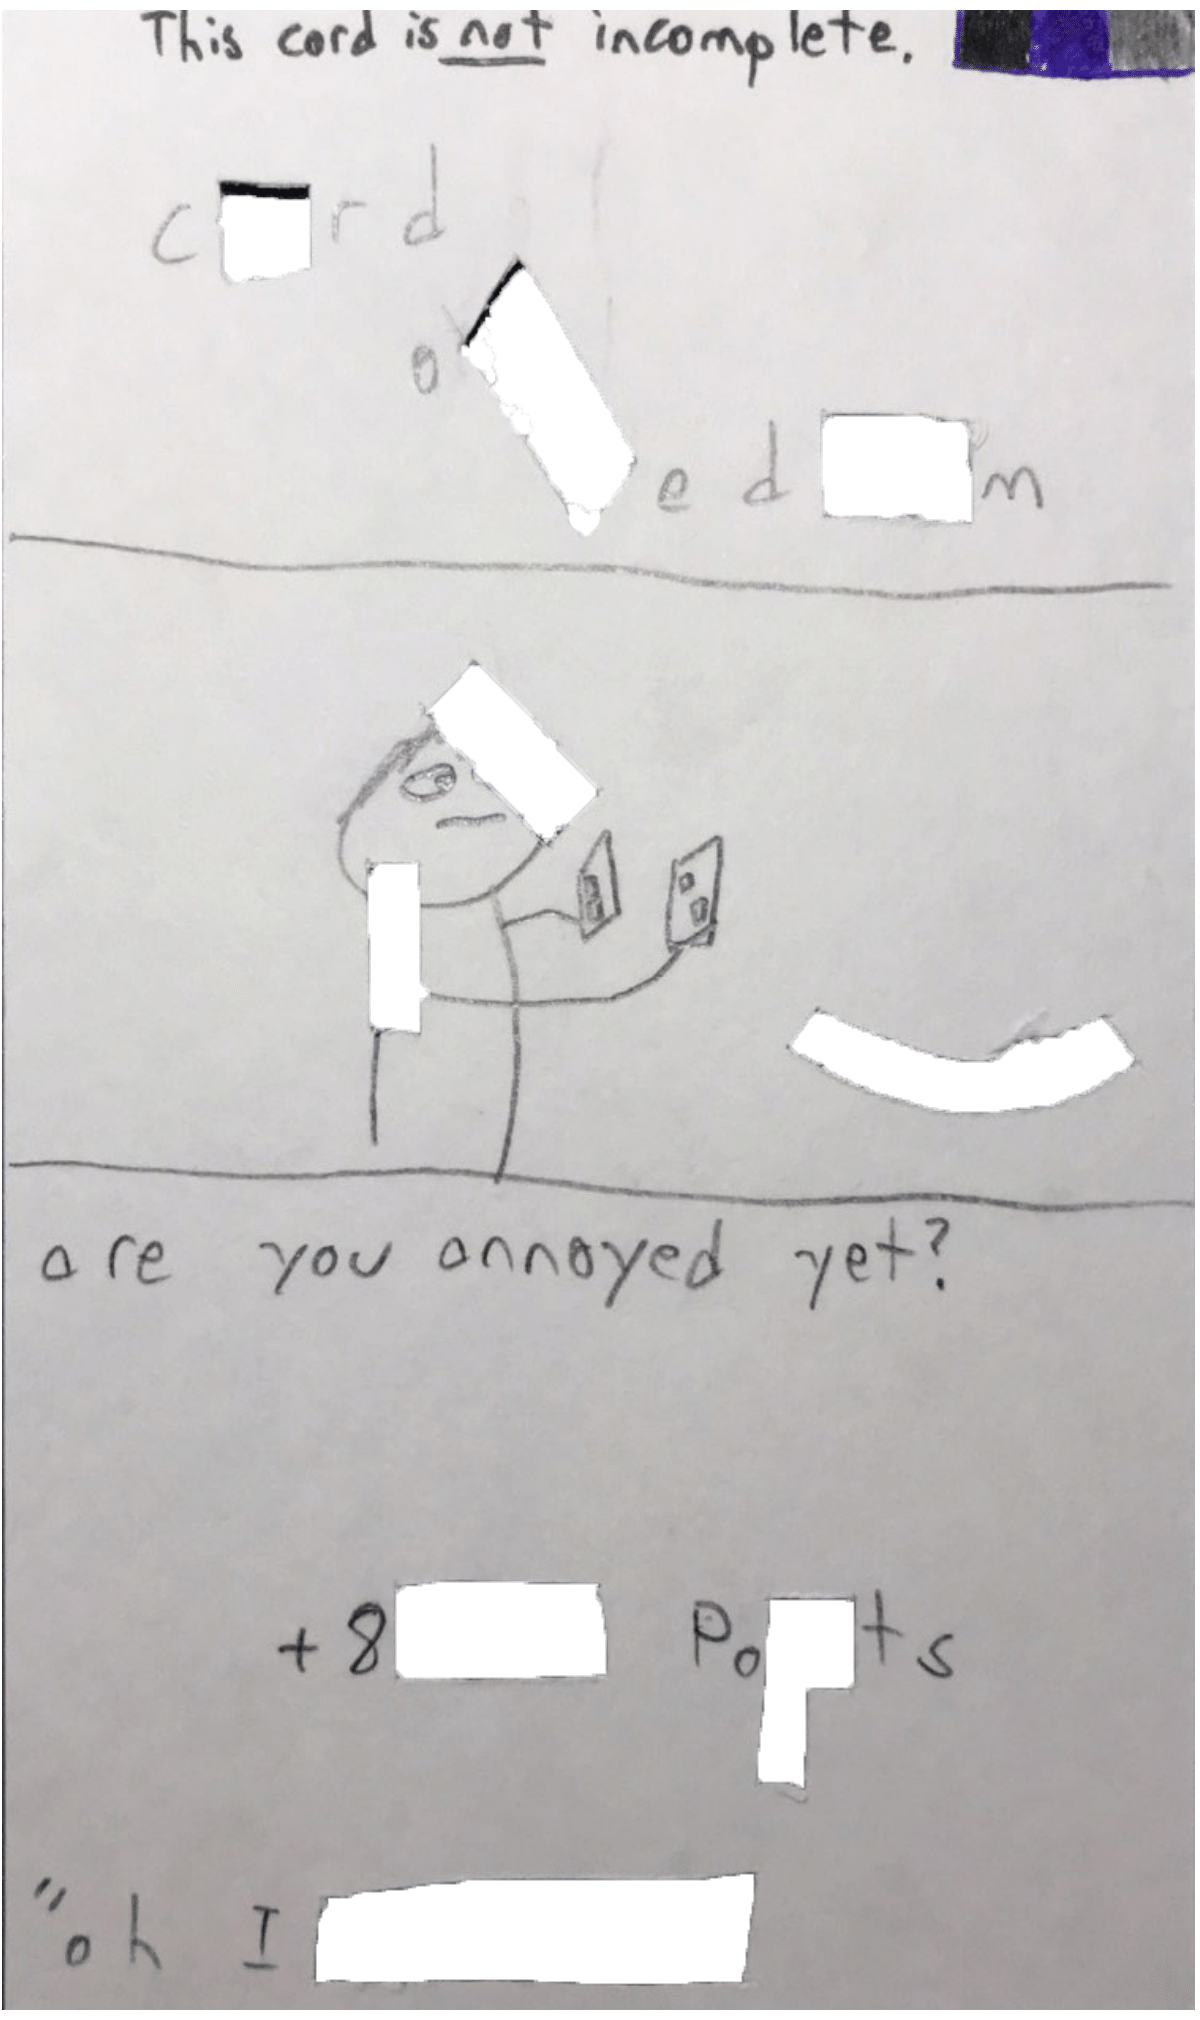 This card is not incomplete.
c rd
o
ed m
are you annoyed yet?
+8 Po ts
"oh I